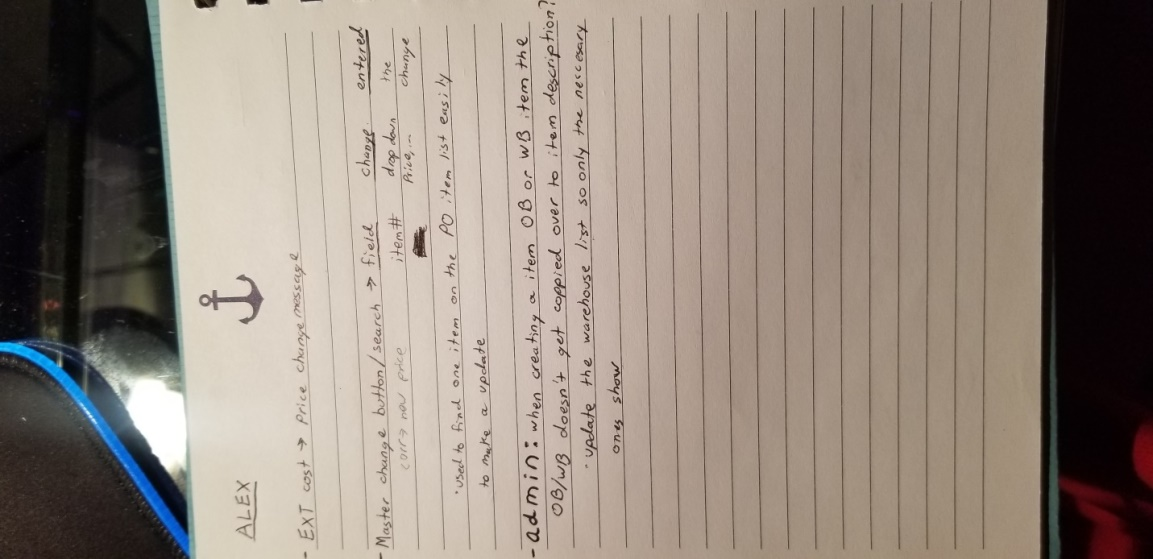 ALEX
- EXT cost → Price change message
- Master change button/search → field change entered
item# drop down the
Price,... change
· used to find one item on the PO item list easily
to make a update
- admin: when creating a item OB or WB item the
OB/WB doesn't get coppied over to item description?
· update the warehouse list so only the neccesary
ones show